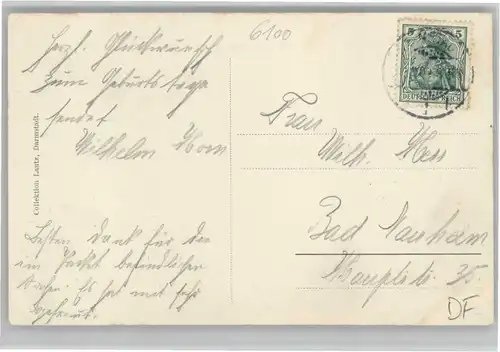 6100
Herzl. Glückwunsch
zum Geburtstage
sendet
Wilhelm Horn
Besten Dank für die
im Packet befindlichen
Sachen. Es hat mich sehr
gefreut.
Collektion Lautz, Darmstadt.
5 5
DEUTSCHES REICH
Frau
Wilh. Hess
Bad Nauheim
Hauptstr. 35.
DF